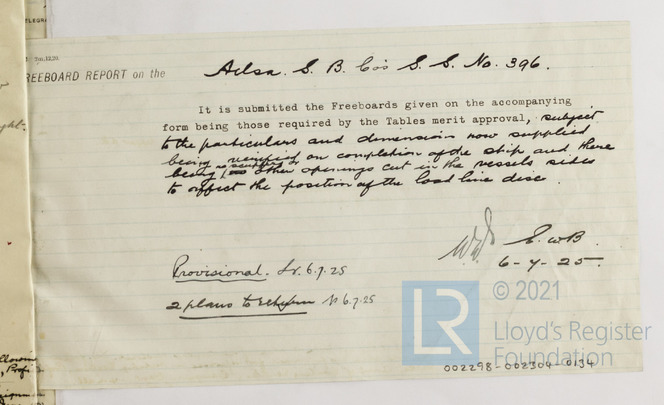 TELEGR
Tm.12.20.
REEBOARD REPORT on the Ailsa. S. B. Co's S. S. No. 396.
It is submitted the Freeboards given on the accompanying
form being those required by the Tables merit approval, subject
to the particulars and dimensions now supplied
being verified on completion of the ship and there
being no scuppers or other openings cut in the vessels sides
to affect the position of the load line disc.
E.W.B.
6-7-25.
Provisional. Lr. 6.7.25
2 plans to 6.7.25
LR
© 2021
Lloyd's Register
Foundation
002298-002304-0134